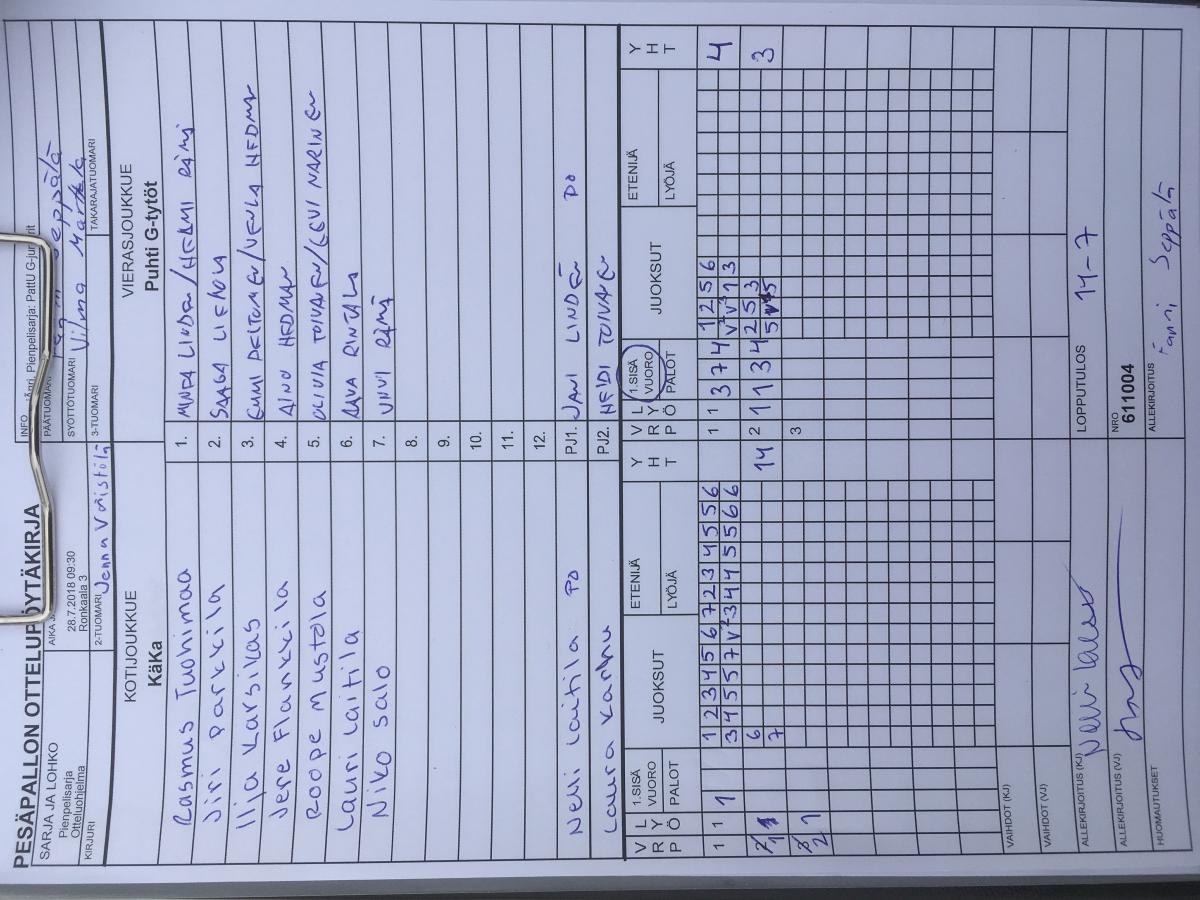 PESÄPALLON OTTELUPÖYTÄKIRJA
SARJA JA LOHKO
Pienpelisarja
Otteluohjelma
KIRJURI
28.7.2018 09:30
Ronkaala 3
2-TUOMARI Jenna Väistölä
INFO
Pienpelisarja: PattU G-juniorit
PÄÄTUOMARI Seppälä
SYÖTTÖTUOMARI Vilma
3-TUOMARI
TAKARAJATUOMARI
KOTIJOUKKUE
KäKa
VIERASJOUKKUE
Puhti G-tytöt
Rasmus Tuohimaa
Jiri Parkkila
Ilja Karsikas
Jere Flankkila
Roope Mustola
Lauri Laitila
Niko Salo
1. MINEA LINDEN/HELMI RÄMI
2. SAAGA
3. EMMI PELTONEN/VENLA HEDMAN
4. AINO HEDMAN
5. OLIVIA TOIVANEN/EEVI NARINEN
6. RINTALA
7. VIIVI RÄMÄ
8.
9.
10.
11.
12.
Nelli Laitila PO
Laura Karhu
PJ1. JANI LINDÉN PO
PJ2. HEIDI TOIVANEN
VRP LYÖ 1.SISÄ VUORO PALOT JUOKSUT ETENIJÄ LYÖJÄ YHT
1 1 1
1 2 3 4 5 6 7 2 3 4 5 5 6
3 4 5 5 7 V² 3 4 4 5 5 6 6
6
7
14
2 1
VRP LYÖ 1.SISÄ VUORO PALOT JUOKSUT ETENIJÄ LYÖJÄ YHT
1 1 3 7 4 1 2 5 6 4
2 1 1 3 4 2 5 3 3
3
VAIHDOT (KJ)
VAIHDOT (VJ)
ALLEKIRJOITUS (KJ)
LOPPUTULOS 14-7
ALLEKIRJOITUS (VJ)
NRO
611004
HUOMAUTUKSET
ALLEKIRJOITUS
Fanni Seppälä